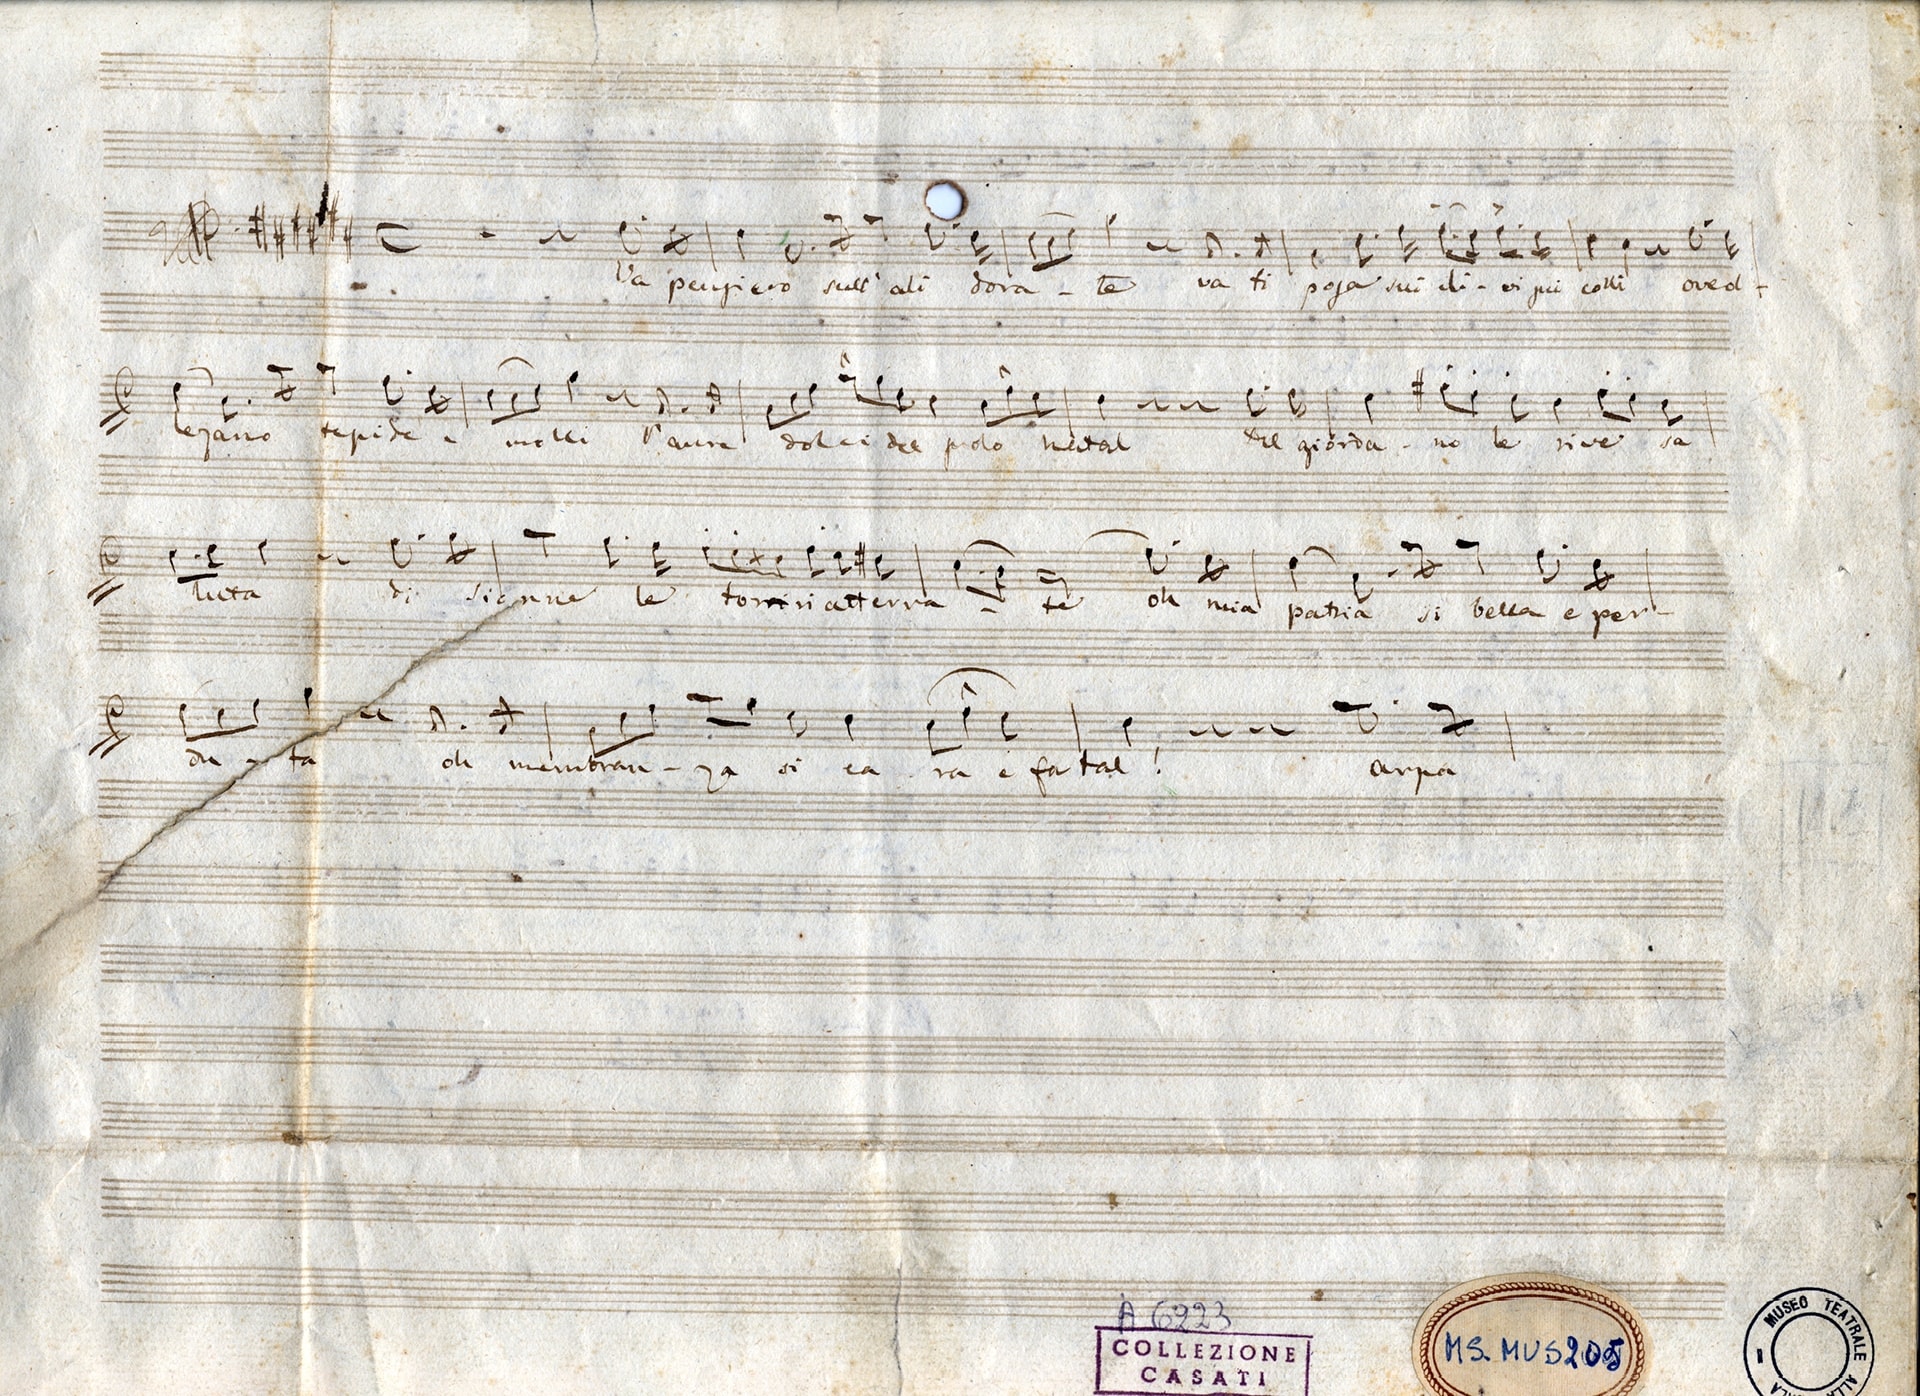 Va pensiero sull' ali dora - te va ti posa sui cli - vi sui colli oved -
lezano tepide e molli l'aure dolci del solo natal Del giorda - no le rive sa
luta di sionne le torri atterra - te oh mia patria si bella e per -
du - ta oh membran - za si ca - ra e fatal! arpa
A 6223
COLLEZIONE
CASATI
MS. MUS 205
MUSEO TEATRALE ALLA